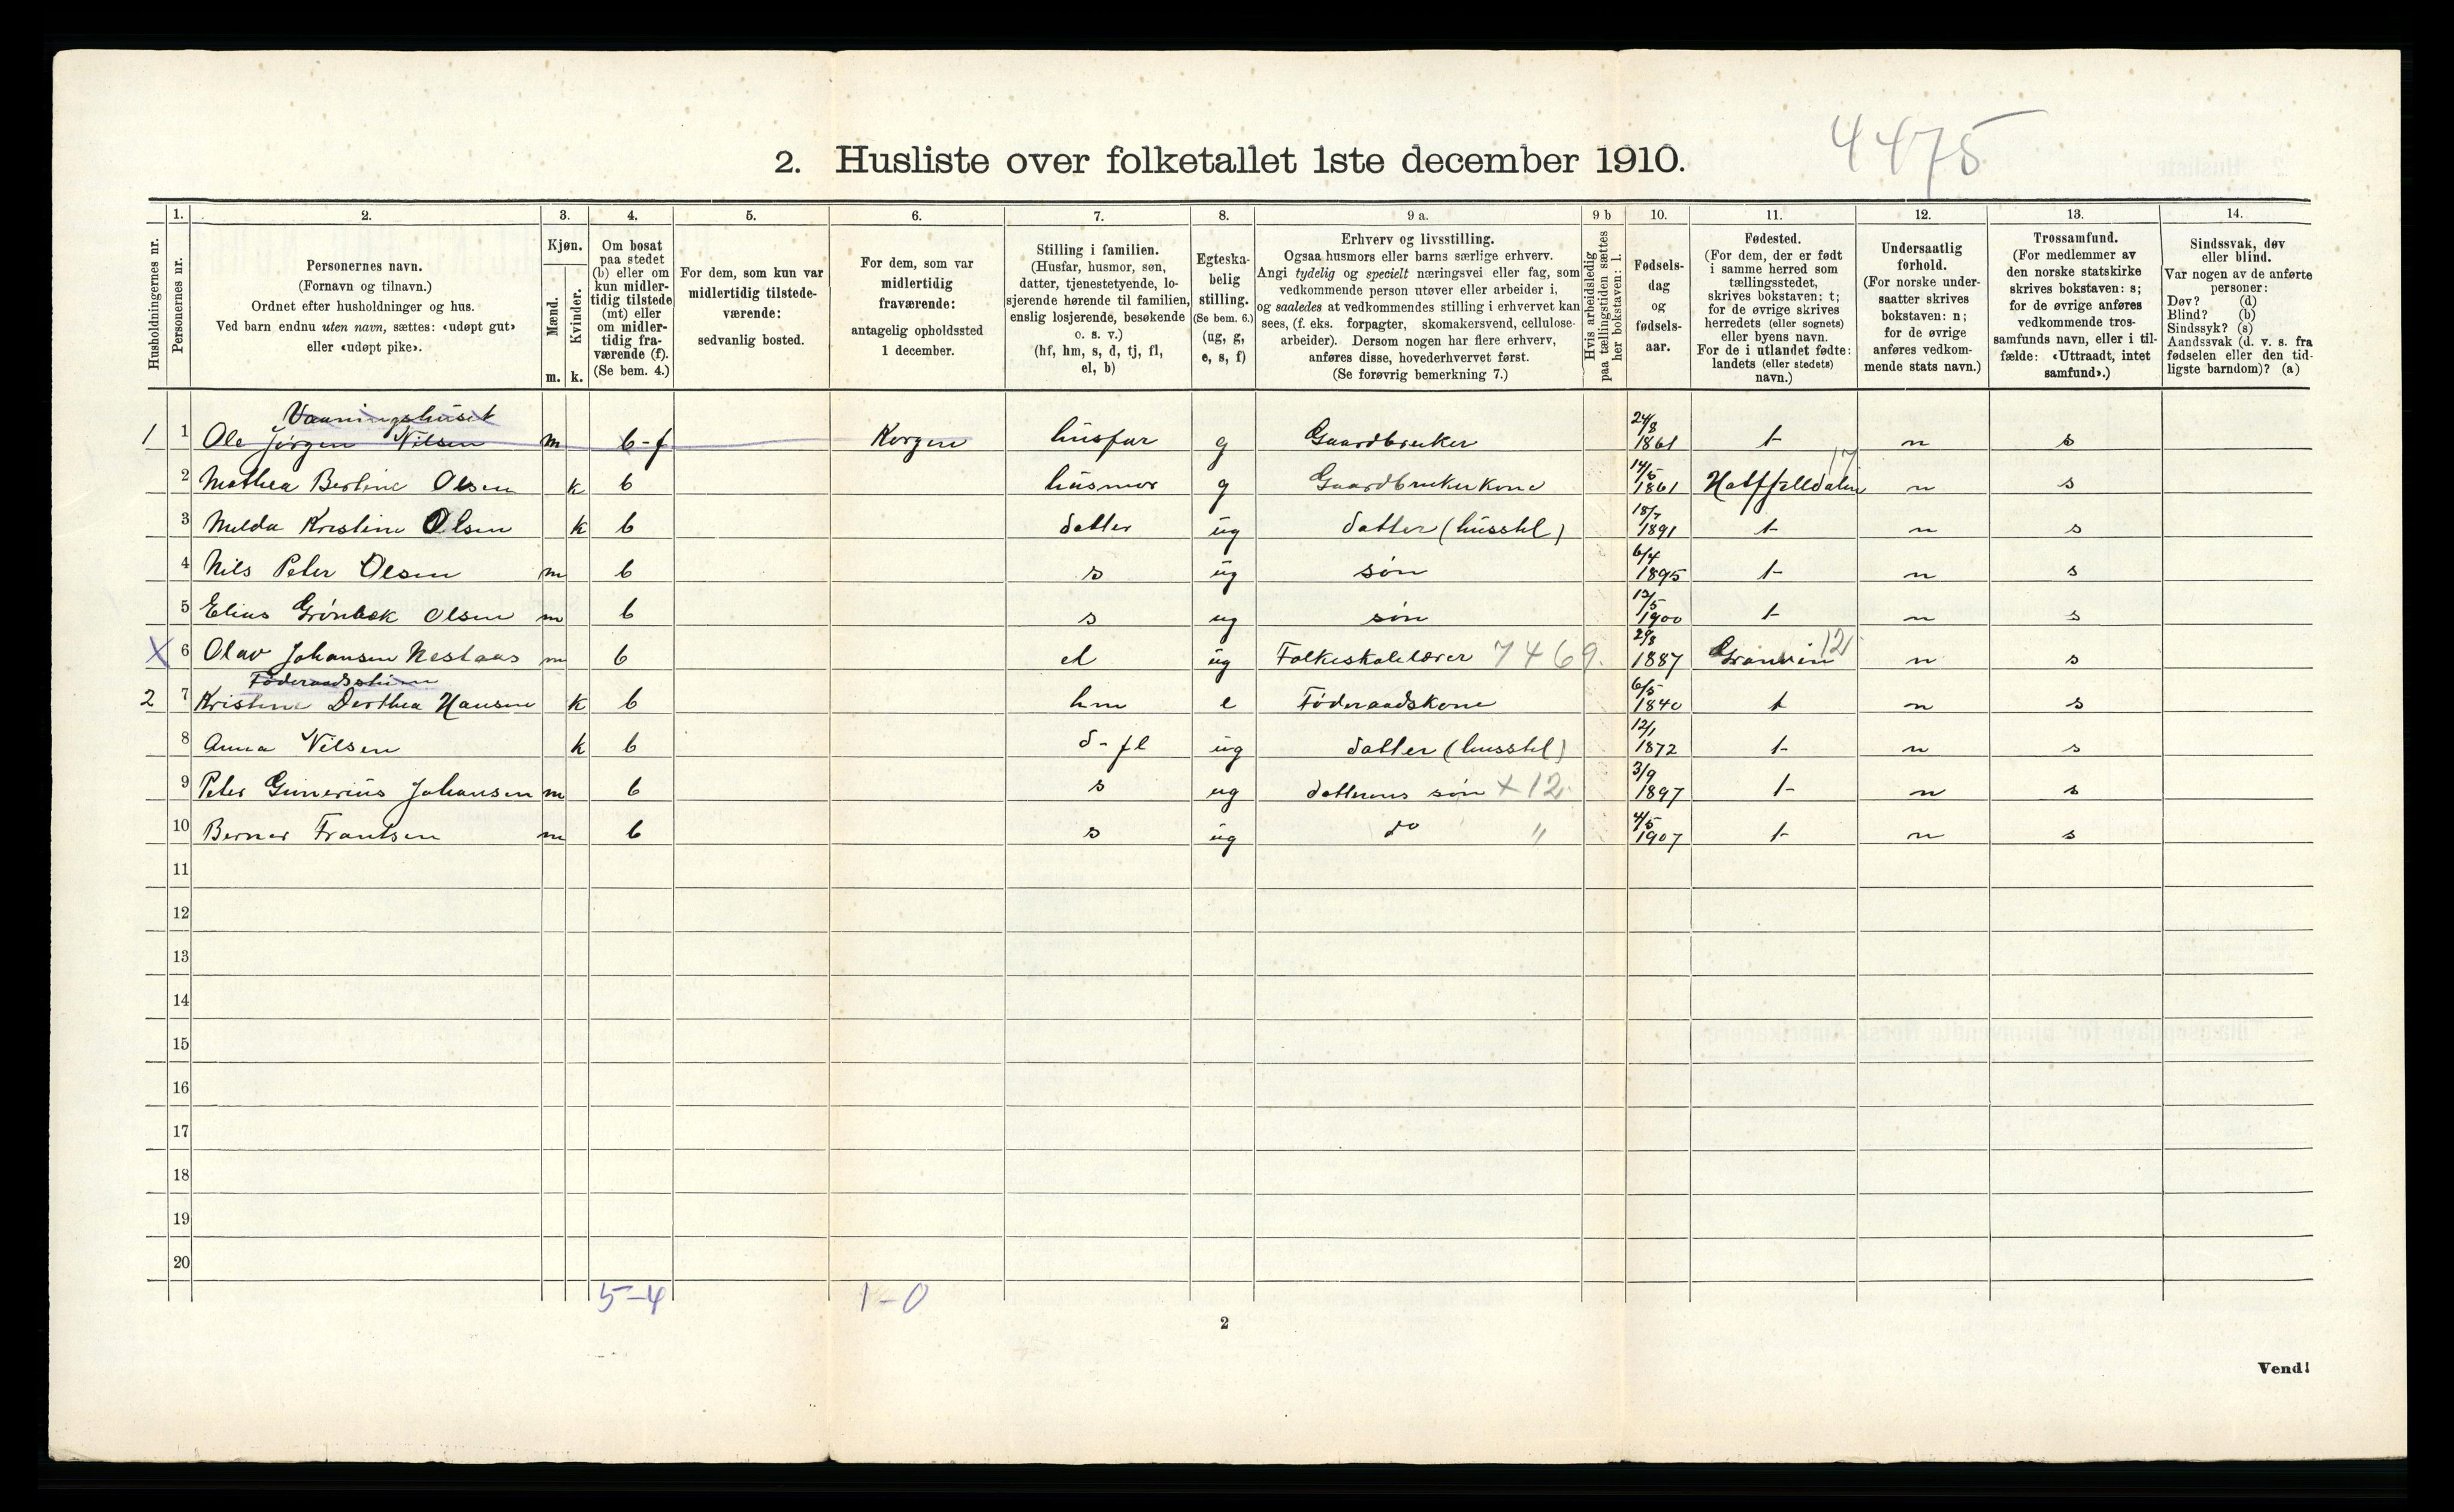 4475
2. Husliste over folketallet 1ste december 1910.
1. 2. 3. 4. 5. 6. 7. 8. 9 a. 9 b 10. 11. 12. 13. 14.
Husholdningernes nr.
Personernes nr.
Personernes navn.
(Fornavn og tilnavn.)
Ordnet efter husholdninger og hus.
Ved barn endnu uten navn, sættes: «udøpt gut»
eller «udøpt pike».
Kjøn.
Mænd.
Kvinder.
m. k.
Om bosat
paa stedet
(b) eller om
kun midler-
tidig tilstede
(mt) eller
om midler-
tidig fra-
værende (f).
(Se bem. 4.)
For dem, som kun var
midlertidig tilstede-
værende:
sedvanlig bosted.
For dem, som var
midlertidig
fraværende:
antagelig opholdssted
1 december.
Stilling i familien.
(Husfar, husmor, søn,
datter, tjenestetyende, lo-
sjerende hørende til familien,
enslig losjerende, besøkende
o. s. v.)
(hf, hm, s, d, tj, fl,
el, b)
Egteska-
belig
stilling.
(Se bem. 6.)
(ug, g,
e, s, f)
Erhverv og livsstilling.
Ogsaa husmors eller barns særlige erhverv.
Angi tydelig og specielt næringsvei eller fag, som
vedkommende person utøver eller arbeider i,
og saaledes at vedkommendes stilling i erhvervet kan
sees, (f. eks. forpagter, skomakersvend, cellulose-
arbeider). Dersom nogen har flere erhverv,
anføres disse, hovederhvervet først.
(Se forøvrig bemerkning 7.)
Hvis arbeidsledig
paa tællingstiden sættes
her bokstaven: l.
Fødsels-
dag
og
fødsels-
aar.
Fødested.
(For dem, der er født
i samme herred som
tællingsstedet,
skrives bokstaven: t;
for de øvrige skrives
herredets (eller sognets)
eller byens navn.
For de i utlandet fødte:
landets (eller stedets)
navn.)
Undersaatlig
forhold.
(For norske under-
saatter skrives
bokstaven: n;
for de øvrige
anføres vedkom-
mende stats navn.)
Trossamfund.
(For medlemmer av
den norske statskirke
skrives bokstaven: s;
for de øvrige anføres
vedkommende tros-
samfunds navn, eller i til-
fælde: «Uttraadt, intet
samfund».)
Sindssvak, døv
eller blind.
Var nogen av de anførte
personer:
Døv? (d)
Blind? (b)
Sindssyk? (s)
Aandssvak (d. v. s. fra
fødselen eller den tid-
ligste barndom)? (a)
Vaaningshuset
1 1 Ole Jörgen Nilsen m b-f Korgen husfar g Gaardbruker 24/8 1861 t n s
2 Mathea Berline Olsen k b husmor g Gaardbrukerkone 14/5 1861 Hatfjelldalen 17 n s
3 Milda Kristine Olsen k b datter ug datter (husstel) 18/7 1891 t n s
4 Nils Peter Olsen m b s ug søn 6/4 1895 t n s
5 Elias Grönbek Olsen m b s ug søn 12/5 1900 t n s
X 6 Olav Johansen Nestaas m b el ug Folkeskolelærer 7469. 29/8 1887 Granvin 12 n s
2 7 Kristine Dorthea Hansen k b hm e Föderaadskone 6/5 1840 t n s
8 Anna Nilsen k b d-fl ug datter (husstel) 12/1 1872 t n s
9 Peter Gunerius Johansen m b s ug datterens søn x 12 3/9 1897 t n s
10 Bernar Frantsen m b s ug do " 4/5 1907 t n s
11
12
13
14
15
16
17
18
19
20
5-4 1-0
2
Vend!